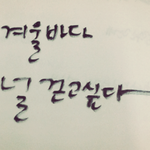 겨울바다
널 걷고싶다